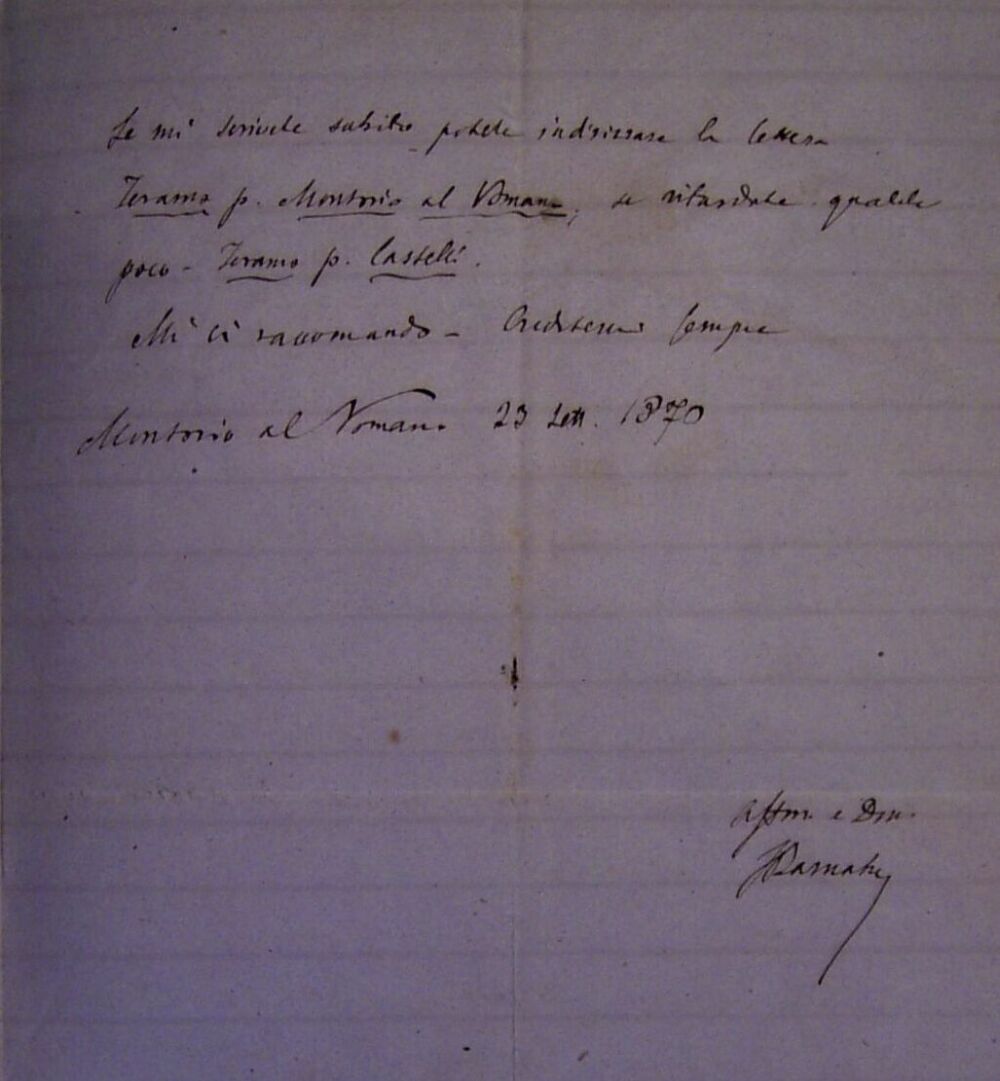 Se mi scrivete subito potete indirizzare la lettera
Teramo p. Montorio al Vomano; se ritardate qualche
poco - Teramo p. Castelli.
Mi ci raccomando - Credetemi sempre
Montorio al Vomano 23 Sett. 1870
Affmo. e Dmo.